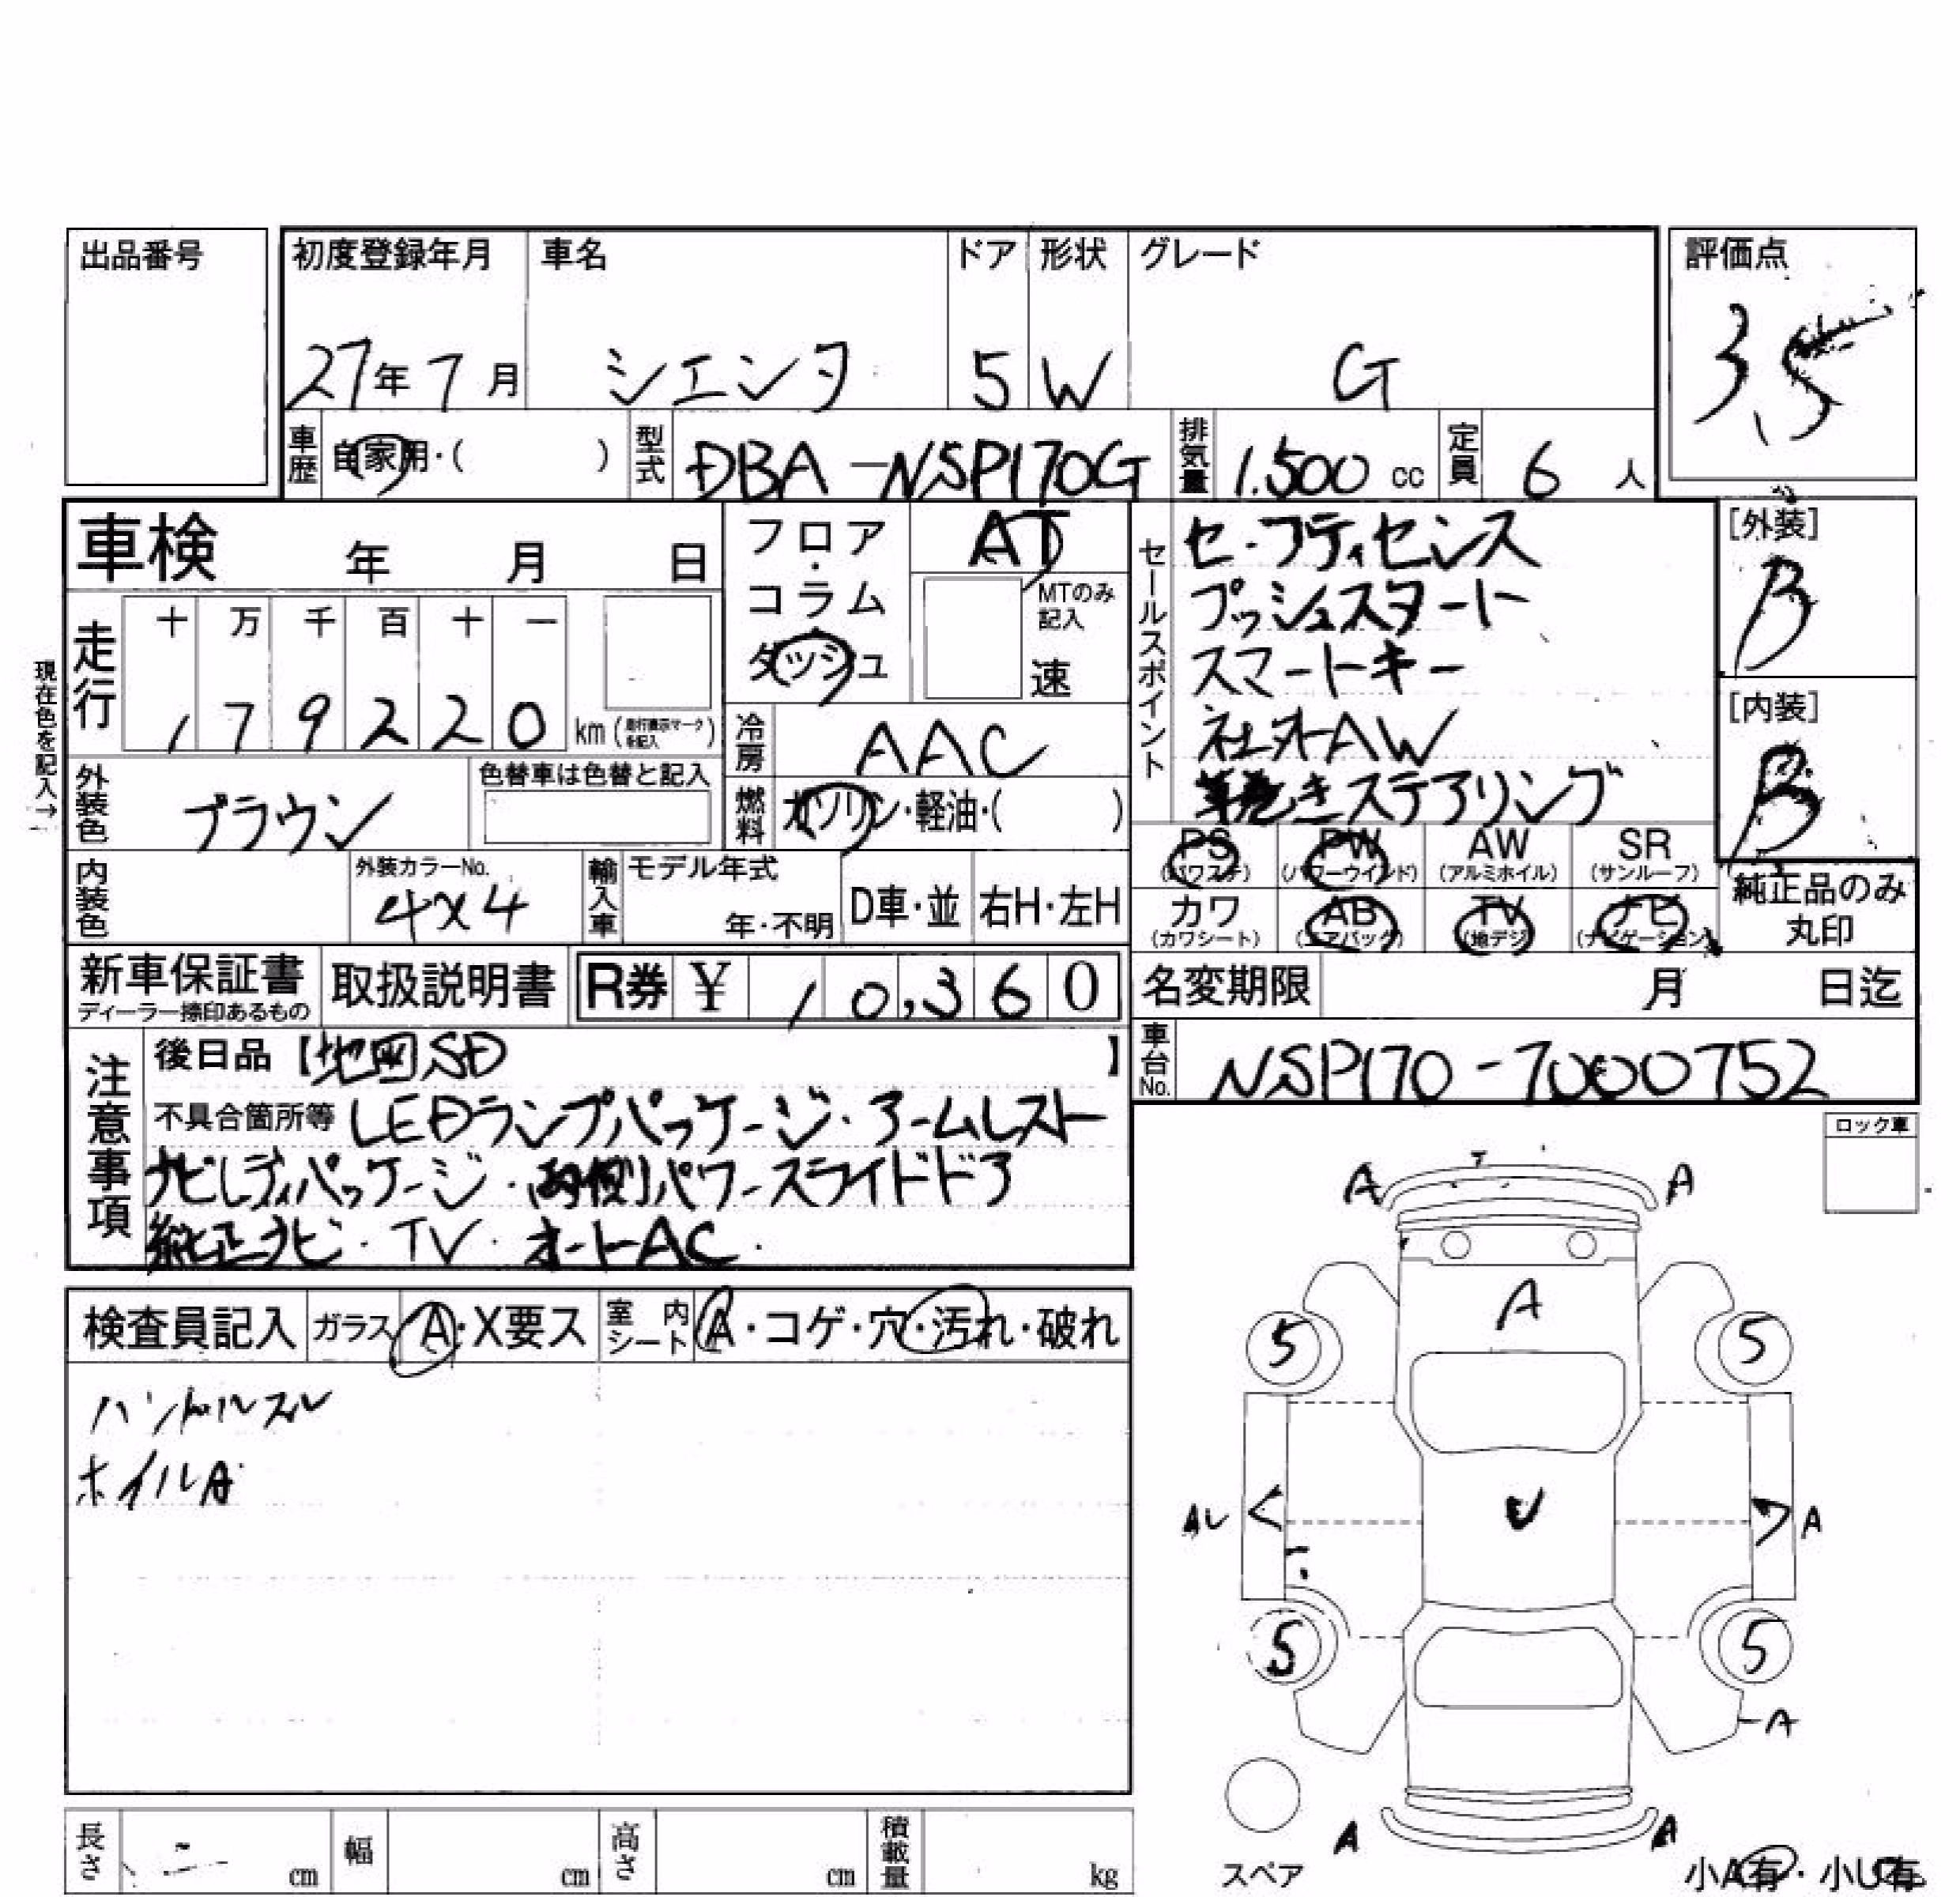 出品番号
初度登録年月 車名 ドア 形状 グレード 評価点
27年7月 シエンタ 5 W G 3.5
車歴 自家用・( ) 型式 DBA-NSP170G 排気量 1.500 cc 定員 6 人
車検 年 月 日
フロア・コラム・ダッシュ
AT
MTのみ記入
速
現在色を記入→
走行 十 万 千 百 十 一
179220 km (走行表示マークを記入)
冷房 AAC
外装色 ブラウン
色替車は色替と記入
燃料 ガソリン・軽油・( )
内装色
外装カラーNo.
4X4
輸入車 モデル年式
年・不明 D車・並 右H・左H
セールスポイント
セーフティセンス
プッシュスタート
スマートキー
社外AW
革巻きステアリング
[外装]
B
[内装]
B
PS PW AW SR
(パワステ) (パワーウインド) (アルミホイル) (サンルーフ)
カワ AB TV ナビ
(カワシート) (エアバッグ) (地デジ) (ナビゲーション)
純正品のみ
丸印
新車保証書
ディーラー捺印あるもの
取扱説明書 R券 ¥ 10,360
名変期限 月 日迄
車台No. NSP170-7000752
注意事項
後日品【地図SD】
不具合箇所等 LEDランプパッケージ・アームレスト
ナビレディパッケージ・両側パワースライドドア
純正ナビ・TV・オートAC.
ロック車
検査員記入 ガラス A・X要ス 室内シート A・コゲ・穴・汚れ・破れ
ハンドルスレ
ホイルA
A A
A
5 5
U
A A
5 5
A
A A
スペア
小A有・小U有
長さ cm 幅 cm 高さ cm 積載量 kg